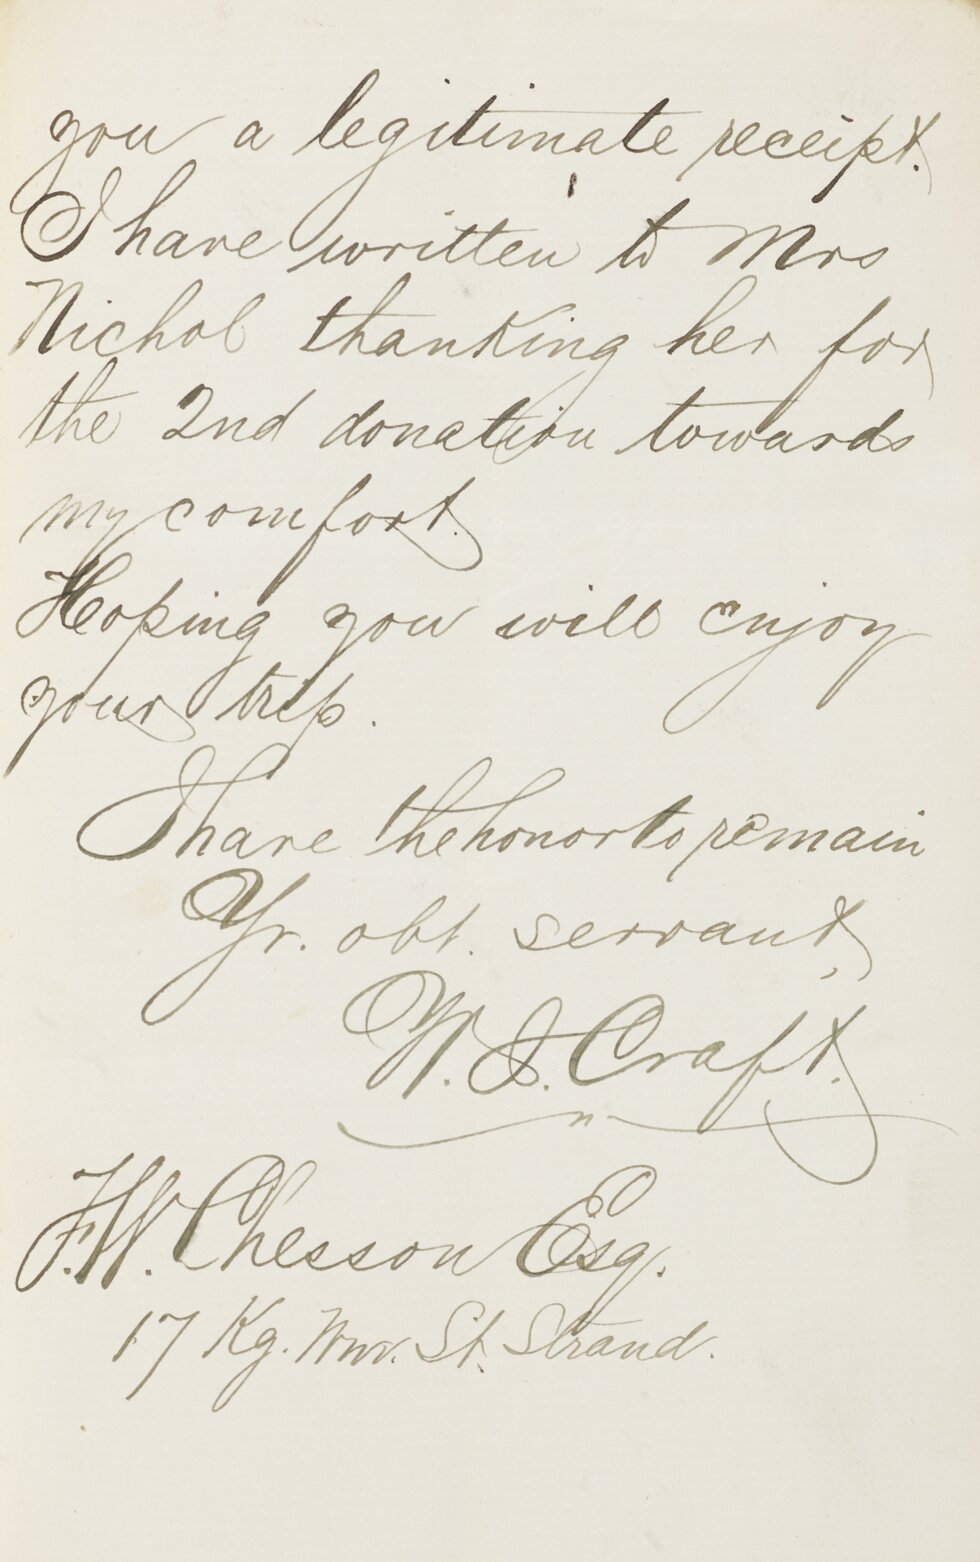 you a legitimate receipt.
I have written to Mrs
Nichol thanking her for
the 2nd donation towards
my comfort.
Hoping you will enjoy
your trip.
I have the honor to remain
Yr. obt. servant,
W. I. Craft.
F. W. Chesson Esq.
17 Kg. Wm. St. Strand.